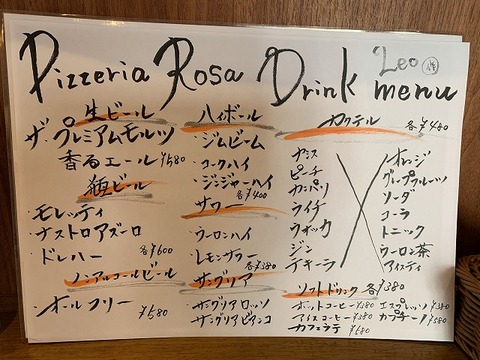 Pizzeria Rosa Drink menu
Leo
生ビール
ザ・プレミアムモルツ
香るエール ¥580
瓶ビール
・モレッティ
・ナストロアズーロ
・ドレハー 各¥600
ノンアルコールビール
・オールフリー ¥580
ハイボール
・ジムビーム
・コークハイ
・ジンジャーハイ
各¥400
サワー
・ウーロンハイ
・レモンサワー
各¥380
サングリア
サングリアロッソ
サングリアビアンコ
カクテル 各¥480
カシス
ピーチ
カンパリ
ライチ
ウォッカ
ジン
テキーラ
オレンジ
グレープフルーツ
ソーダ
コーラ
トニック
ウーロン茶
アイスティ
ソフトドリンク 各¥380
ホットコーヒー ¥380 エスプレッソ ¥380
アイスコーヒー ¥380 カプチーノ ¥580
カフェラテ ¥580